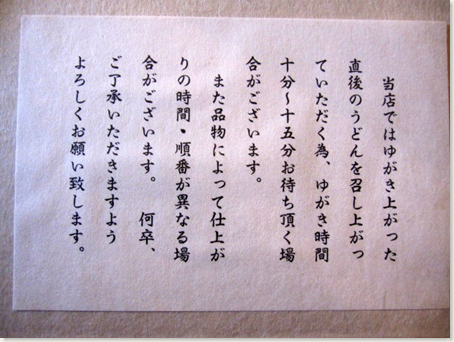 当店ではゆがき上がった
直後のうどんを召し上がっ
ていただく為、ゆがき時間
十分～十五分お待ち頂く場
合がございます。
また品物によって仕上が
りの時間・順番が異なる場
合がございます。　何卒、
ご了承いただきますよう
よろしくお願い致します。